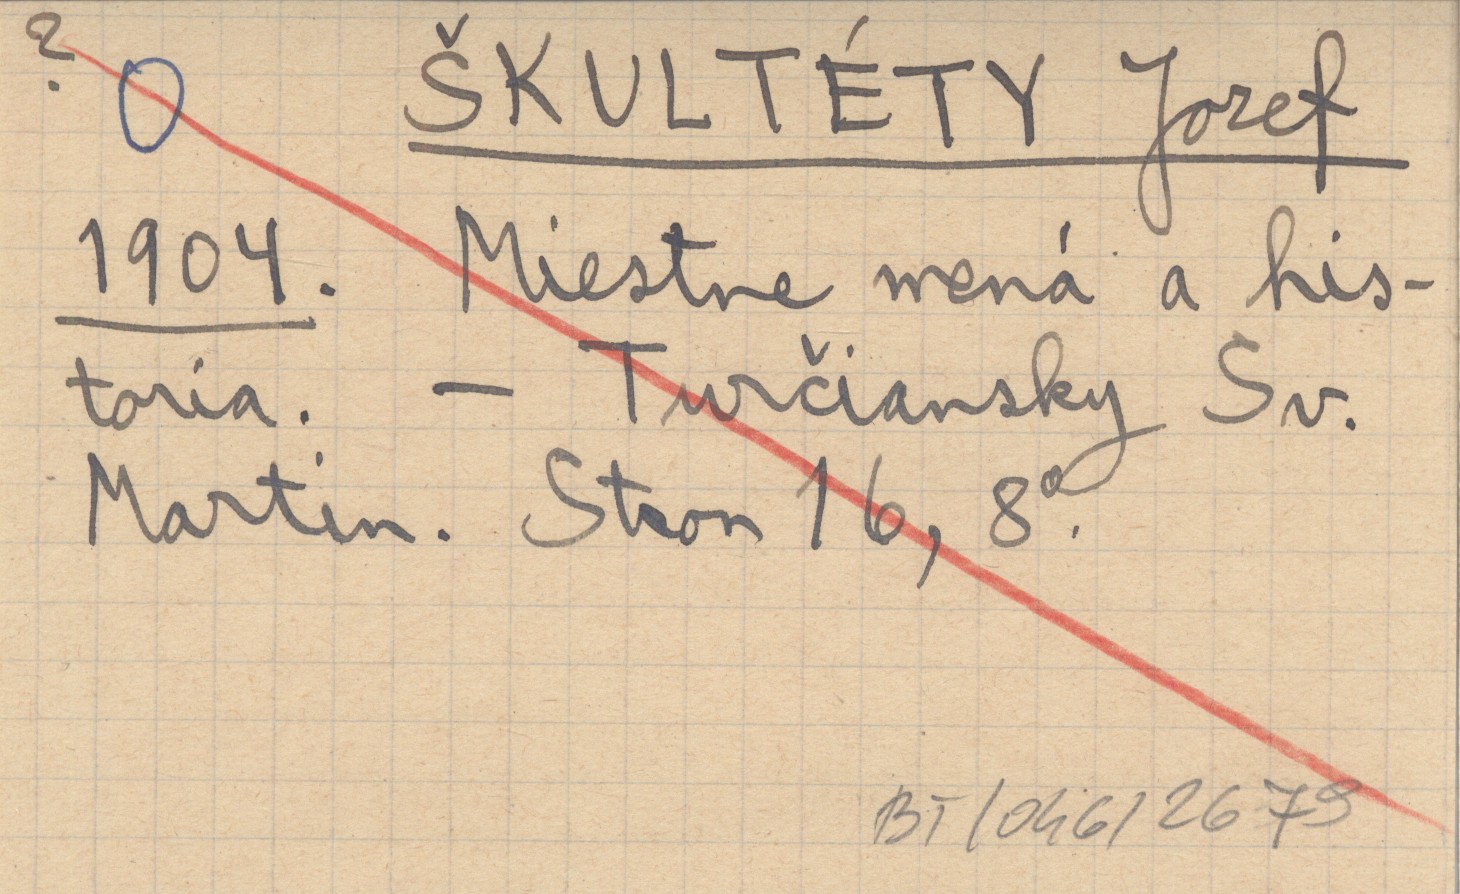 ?
O ŠKULTÉTY Jozef
1904. Miestne mená a his-
toria. - Turčiansky Sv.
Martin. Stron 16, 8º.
BT/046/2679